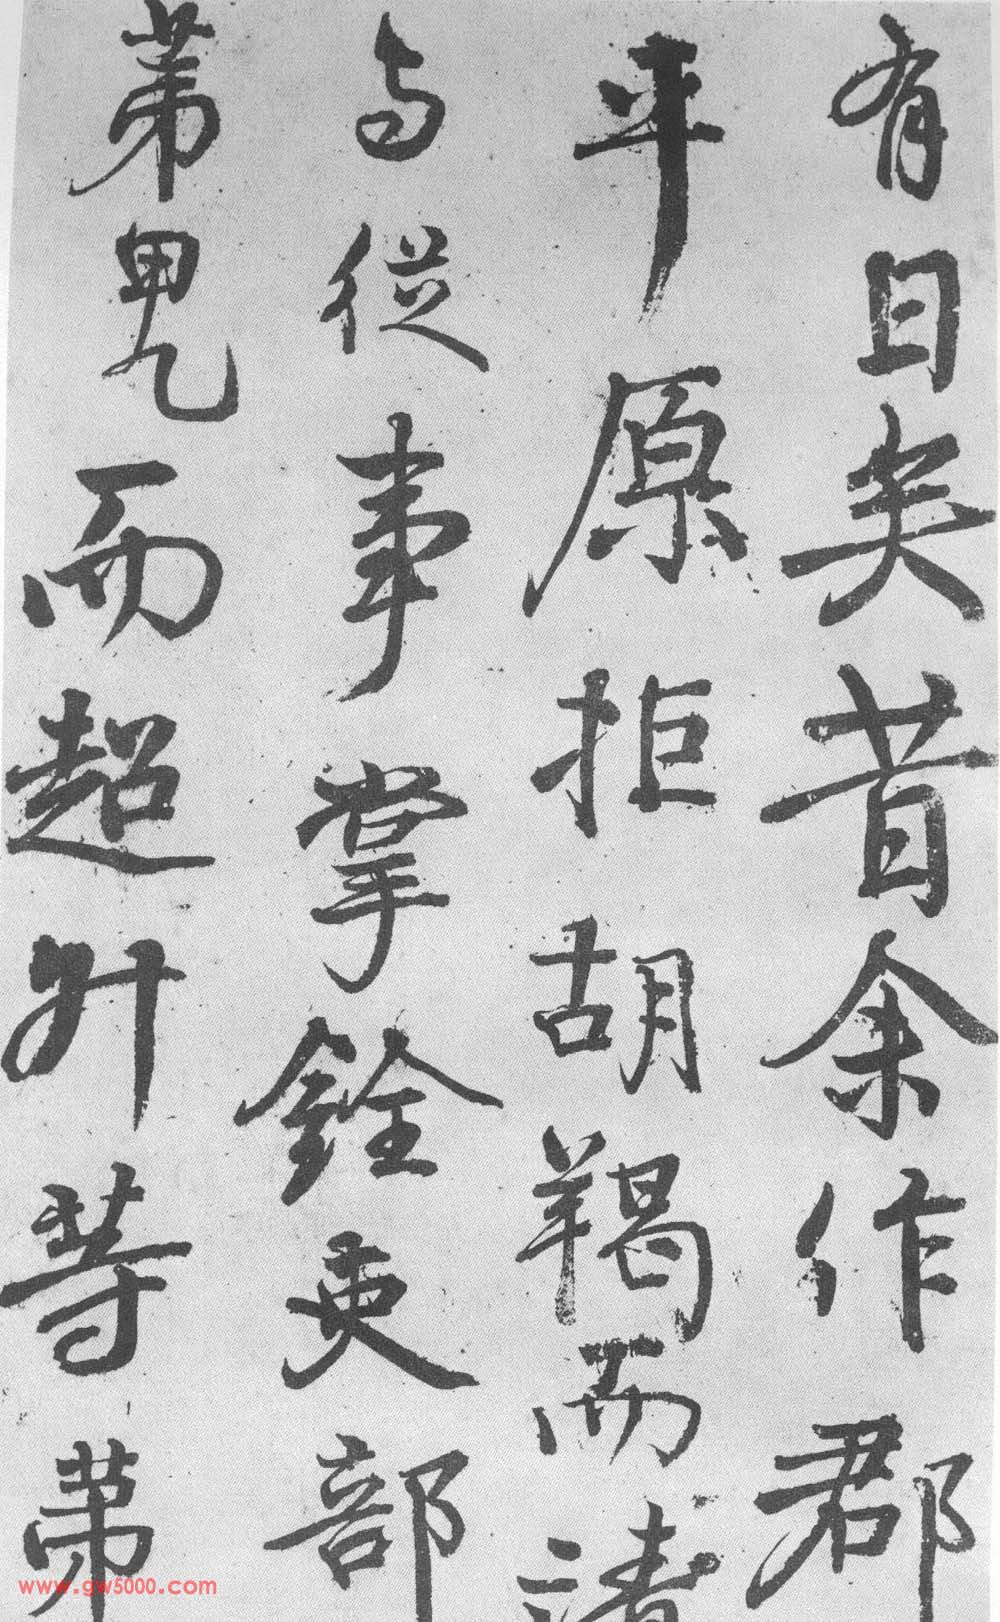 有日矣昔余作郡
平原拒胡羯而請
与從事掌銓吏部
第甲乙而超升等第
www.gw5000.com